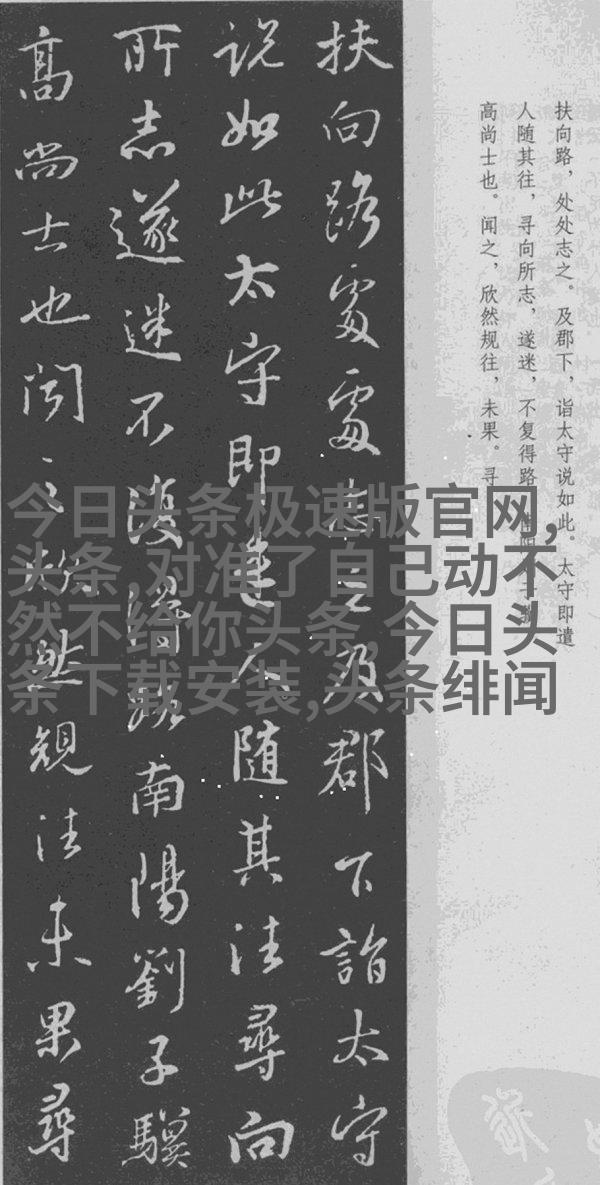 扶向路，处处志之。及郡下，诣太守说如此。太守即遣
人随其往，寻向所志，遂迷，不复得路
高尚士也。闻之，欣然规往，未果。寻
扶向路處處志之及郡下詣太守
説如此太守即遣人随其往尋向
所志遂迷不復得路南陽劉子驥
髙尚士也聞之欣然規往未果尋
今日头条极速版官网,
头条,对准了自己动不
然不给你头条,今日头
条下载安装,头条绯闻